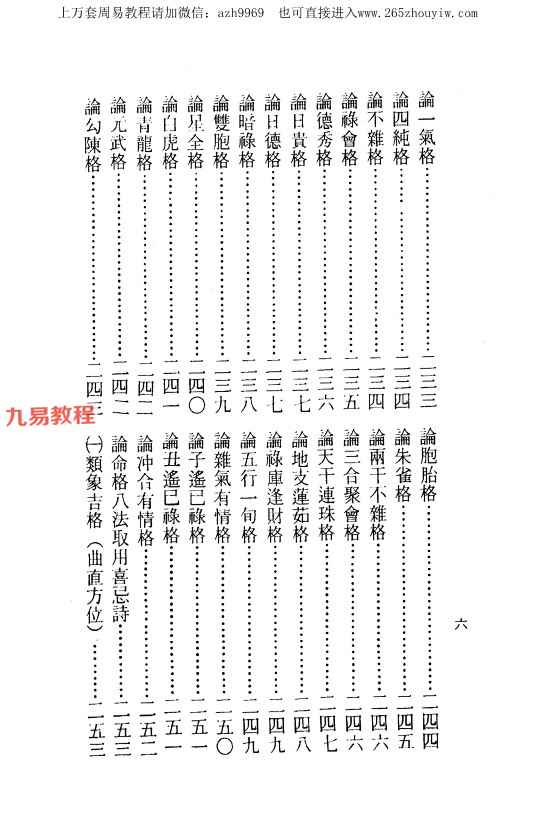 上万套周易教程请加微信：azh9969 也可直接进入www.265zhouyiw.com
論一氣格……二三三
論四純格……二三四
論不雜格……二三四
論祿會格……二三五
論德秀格……二三六
論日貴格……二三七
論日德格……二三七
論暗祿格……二三八
論雙胞格……二三九
論星全格……二四〇
論白虎格……二四一
論青龍格……二四二
論元武格……二四二
論勾陳格……二四三
九易教程
論胞胎格……二四四
論朱雀格……二四五
論兩干不雜格……二四六
論三合聚會格……二四六
論天干連珠格……二四七
論地支蓮茹格……二四八
論祿庫逢財格……二四九
論五行一旬格……二四九
論雜氣有情格……二五〇
論子遙巳祿格……二五一
論丑遙巳祿格……二五一
論冲合有情格……二五二
論命格八法取用喜忌詩……二五三
㈠類象吉格（曲直方位）……二五三
六